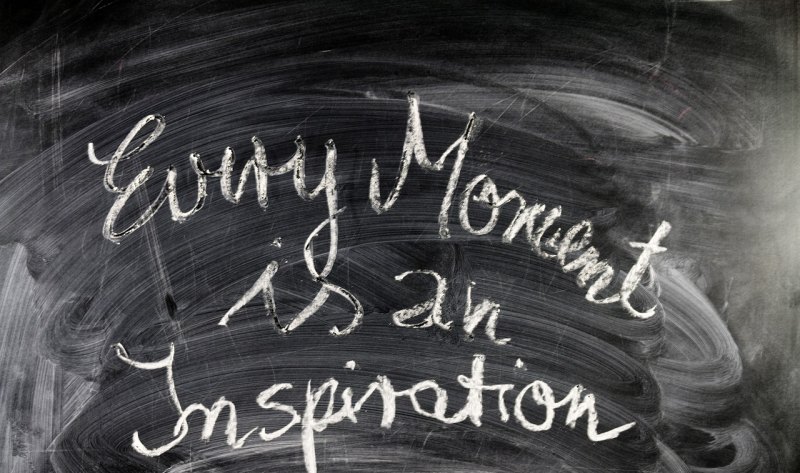 Every Moment
is an
Inspiration